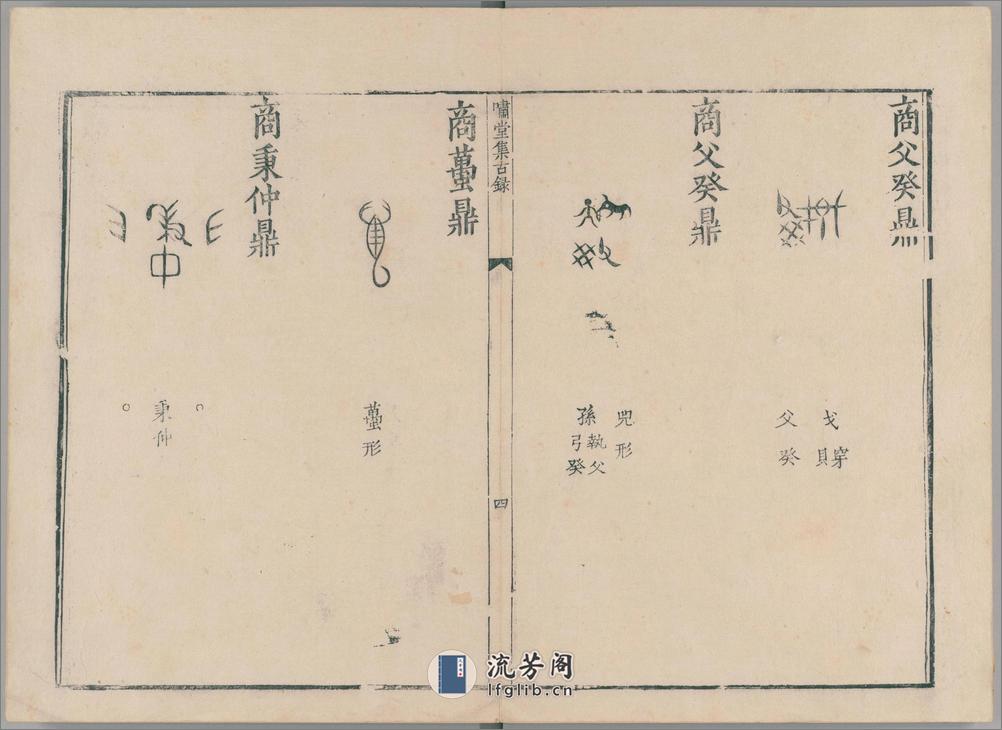 商父癸鼎
戈
穿
貝
父癸
商父癸鼎
兕形
孫
執父
弓癸
嘯堂集古錄
四
商蠆鼎
蠆形
商秉仲鼎
秉仲
流芳阁
lfglib.cn